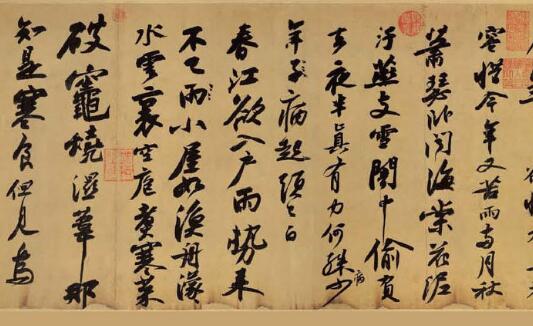 容惜今年又苦雨兩月秋
蕭瑟卧聞海棠花泥
汙燕支雪闇中偷負
去夜半真有力何殊少病
年子病起頭已白
春江欲入戶雨勢來
不已雨小屋如漁舟濛
水雲裏空庖煮寒菜
破竈燒濕葦那
知是寒食但見烏